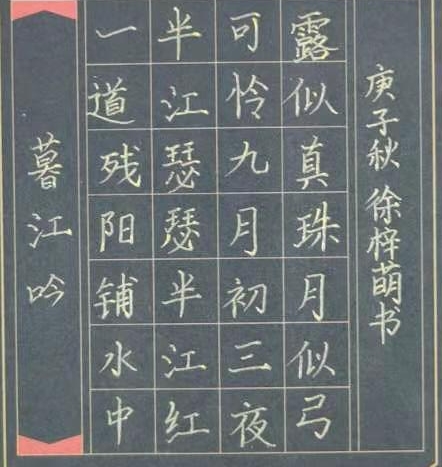 暮江吟
一道残阳铺水中
半江瑟瑟半江红
可怜九月初三夜
露似真珠月似弓
庚子秋徐梓萌书